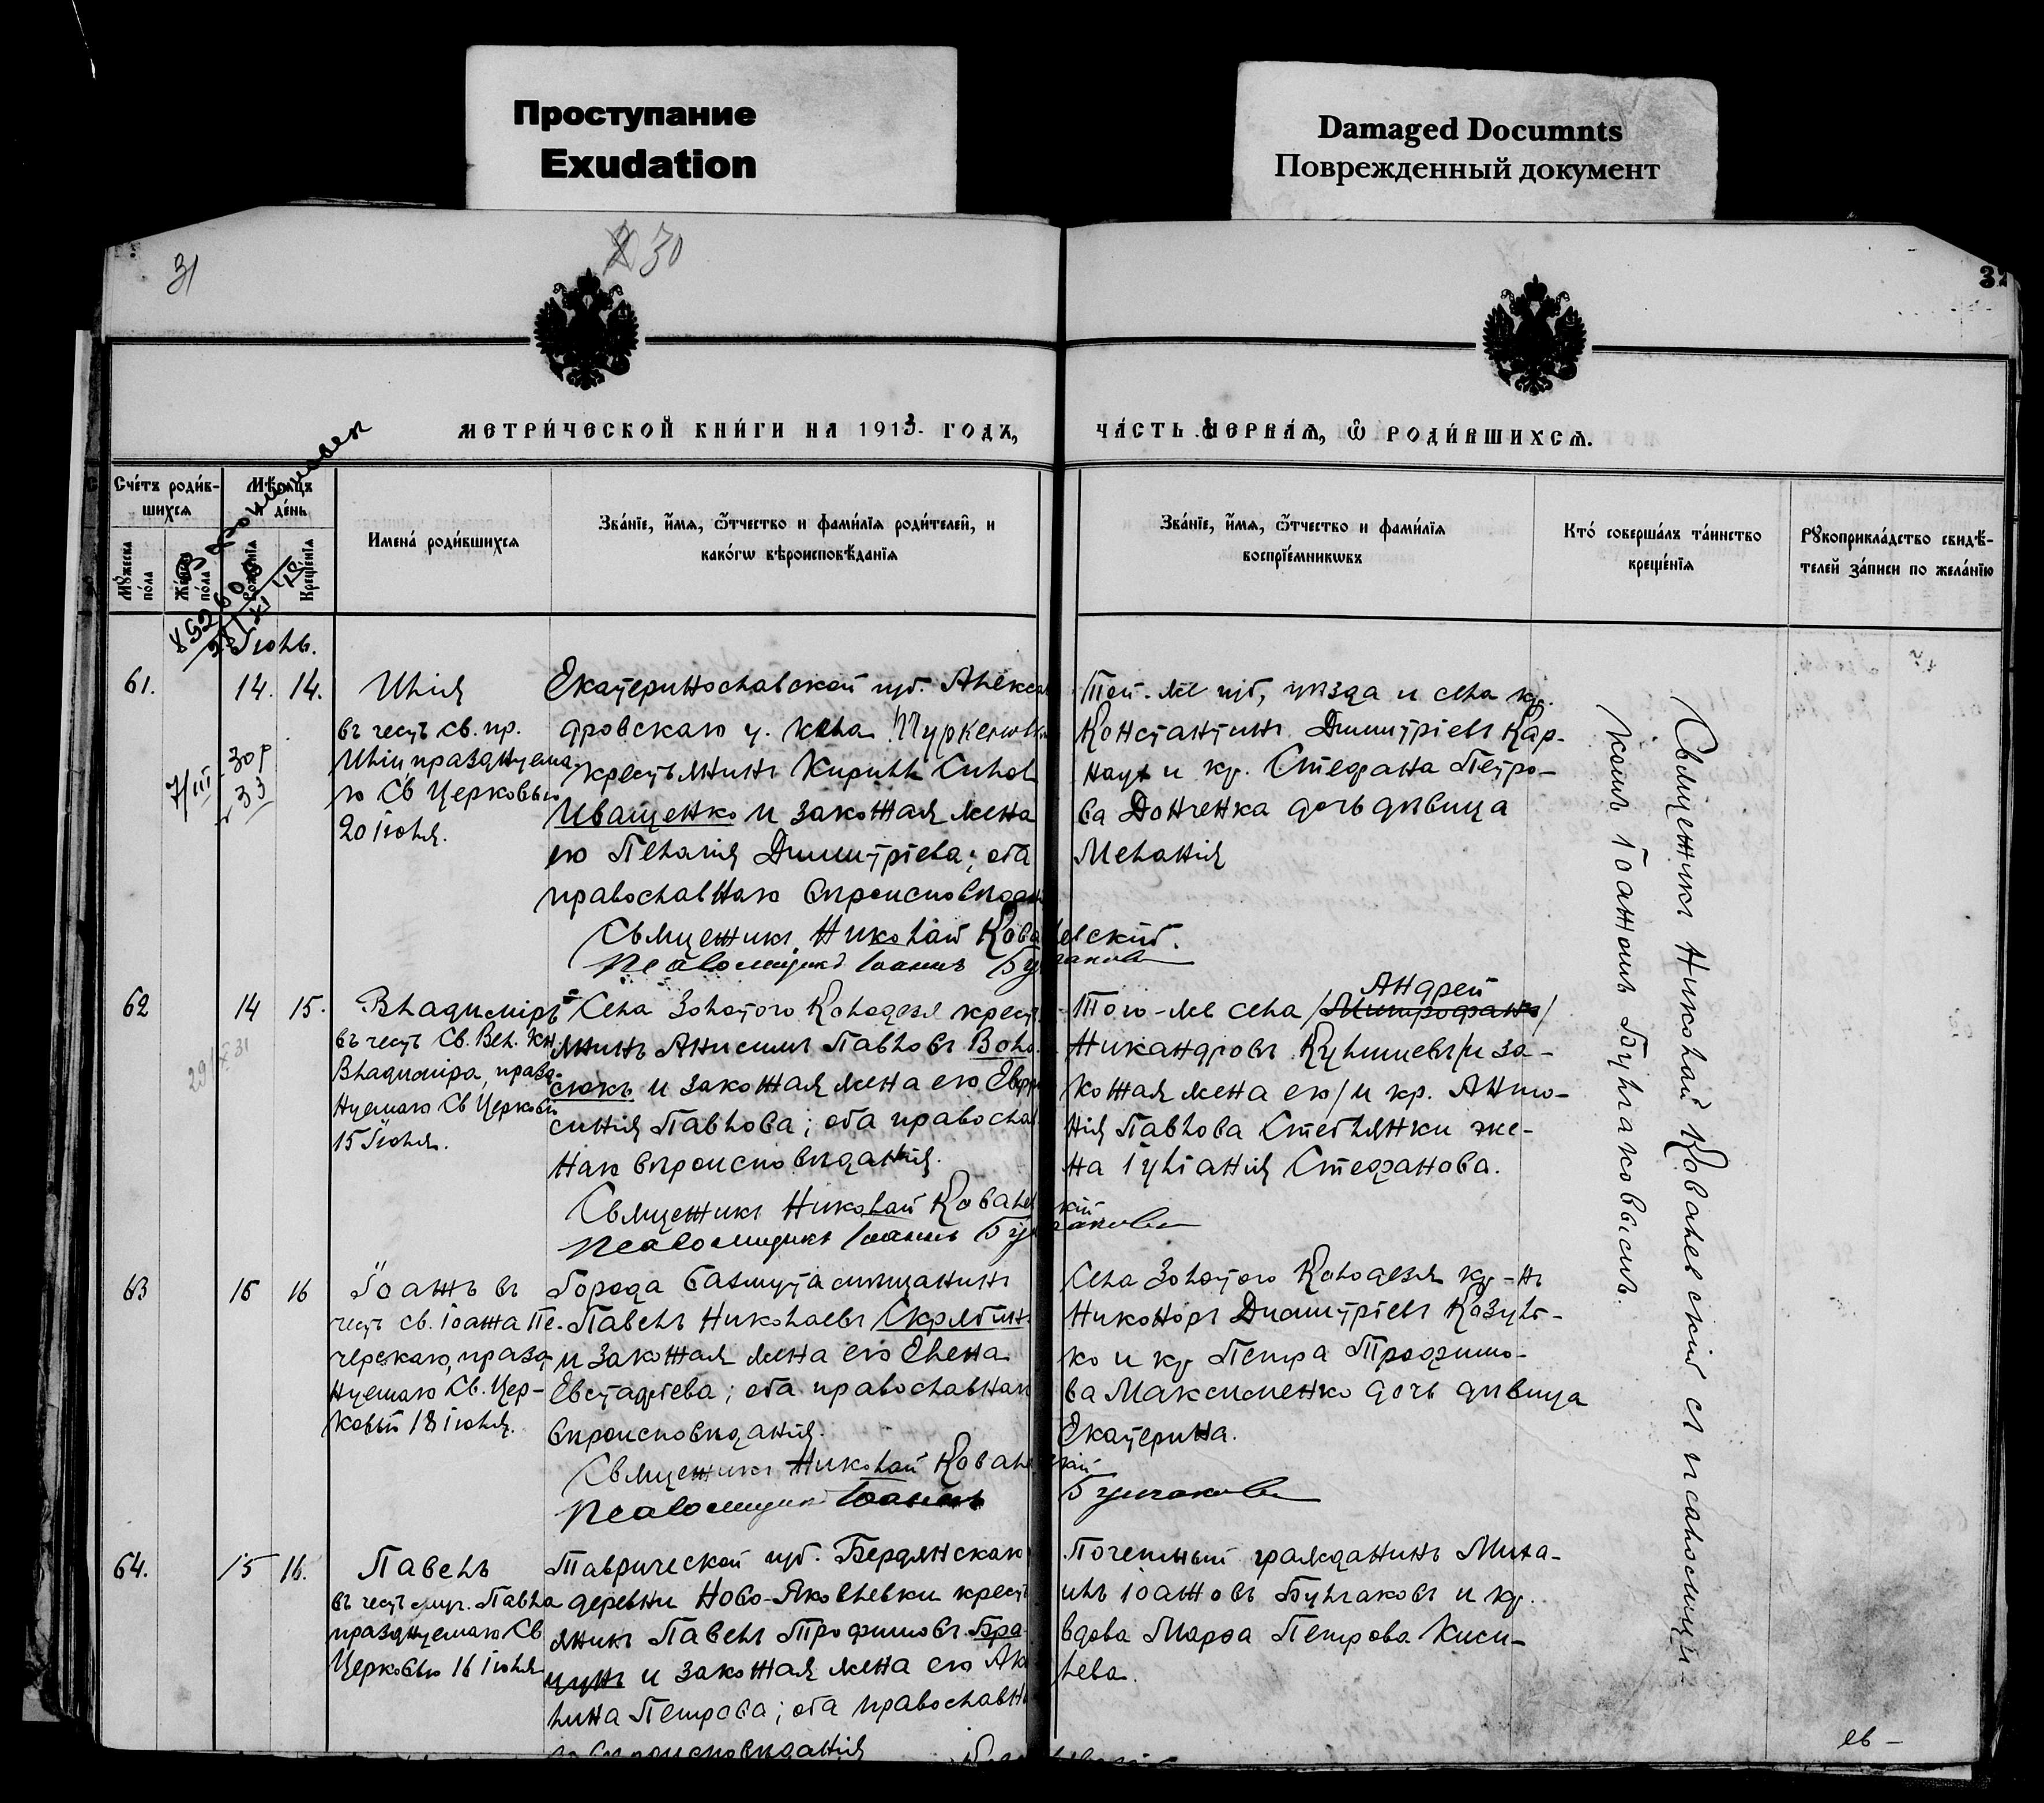 Проступание
Exudation
Damaged Documnts
Поврежденный документ
31
30
32
МЕТРИ́ЧЕСКОЙ КНИ́ГИ НА 1913. ГОДЪ,
ЧА́СТЬ ПЕРВАѦ, Ѿ РОДИ́ВШИХСѦ.
Сче́тъ роди́в-
шихся
Мꙋжеска по́ла
Же́нска по́ла
Мѣ́сяцъ
де́нь
Рождє́нїя
Креще́нїя
Имена̀ роди́вшихся
Зва́нїе, и҆́мя, ѻ҆́тчество и фами́лїя роди́телей, и
како́гѡ вѣроисповѣ́данїя
Зва́нїе, и҆́мя, ѻ҆́тчество и фами́лїя
воспрїе́мникѡвъ
Кто̀ соверша́лъ та́инство
креще́нїя
Рꙋкоприкла́дство свидѣ́-
телей за́писи по жела́нїю
Іюль.
61.
14. 14.
Илія
въ честь св. пр.
Иліи празднуема-
го Св Церковью
20 іюля.
7/III
Екатеринославской губ. Алексан
дровскаго у. села
крестьянинъ Кириллъ
Иващенко и законная жена
его Пелагія Димитріева; оба
православнаго вѣроисповѣдан
Священникъ Николай Ковалевскій.
Псаломщикъ Іоаннъ Булгаковъ
Той-же губ, уѣзда и села кр.
Константинъ Димитріевъ Кар-
наух и кр. Стефана Петро-
ва Донченка дочь дѣвица
Меланія
62
14 15.
Владиміръ
въ честь Св. Вел. Кн
Владиміра, празд-
нуемаго Св Церковью
15 Іюля.
Села Золотого Колодезя крест
янинъ Анисимъ Павловъ Воло
сюкъ и законная жена его Евфро
синія Павлова; оба православ
наго вѣроисповѣданія.
Священникъ Николай Ковалевскій
Псаломщикъ Іоаннъ Булгаковъ
Андрей
Того-же села /Митрофанъ/
Никандровъ Кулишевъ/и за-
конная жена его/ и кр. Анто-
нія Павлова Стеблянки же-
на Іуліанія Стефанова.
63
15 16
Іоаннъ въ
честь св. Іоанна Пе-
черскаго, празд-
нуемаго Св. Цер-
ковью 18 іюля.
Города Бахмута мѣщанинъ
Павелъ Николаевъ Скрябинъ
и законная жена его Елена
Евстафіева; оба православнаго
вѣроисповѣданія.
Священникъ Николай Ковалевскій
Псаломщикъ Іоаннъ Булгаковъ
Села Золотого Колодезя кр-нъ
Никоноръ Димитріевъ Козуль-
ко и кр Петра Трофимо-
ва Максименко дочь дѣвица
Екатерина.
64.
15 16.
Павелъ
въ честь муч. Павла
празднуемаго Св
Церковью 16 іюля
Таврической губ. Бердянскаго
деревни Ново-Яковлевки кресть
янинъ Павелъ Трофимовъ Бра
и законная жена его Аку
лина Петрова; оба православна
го вѣроисповѣданія
Почетный гражданинъ Миха-
илъ Іоанновъ Булгаковъ и кр.
вдова Марфа Петрова Кисе-
лева.
Священникъ Николай Ковалевскій съ псаломщи-
комъ Іоанномъ Булгаковымъ.